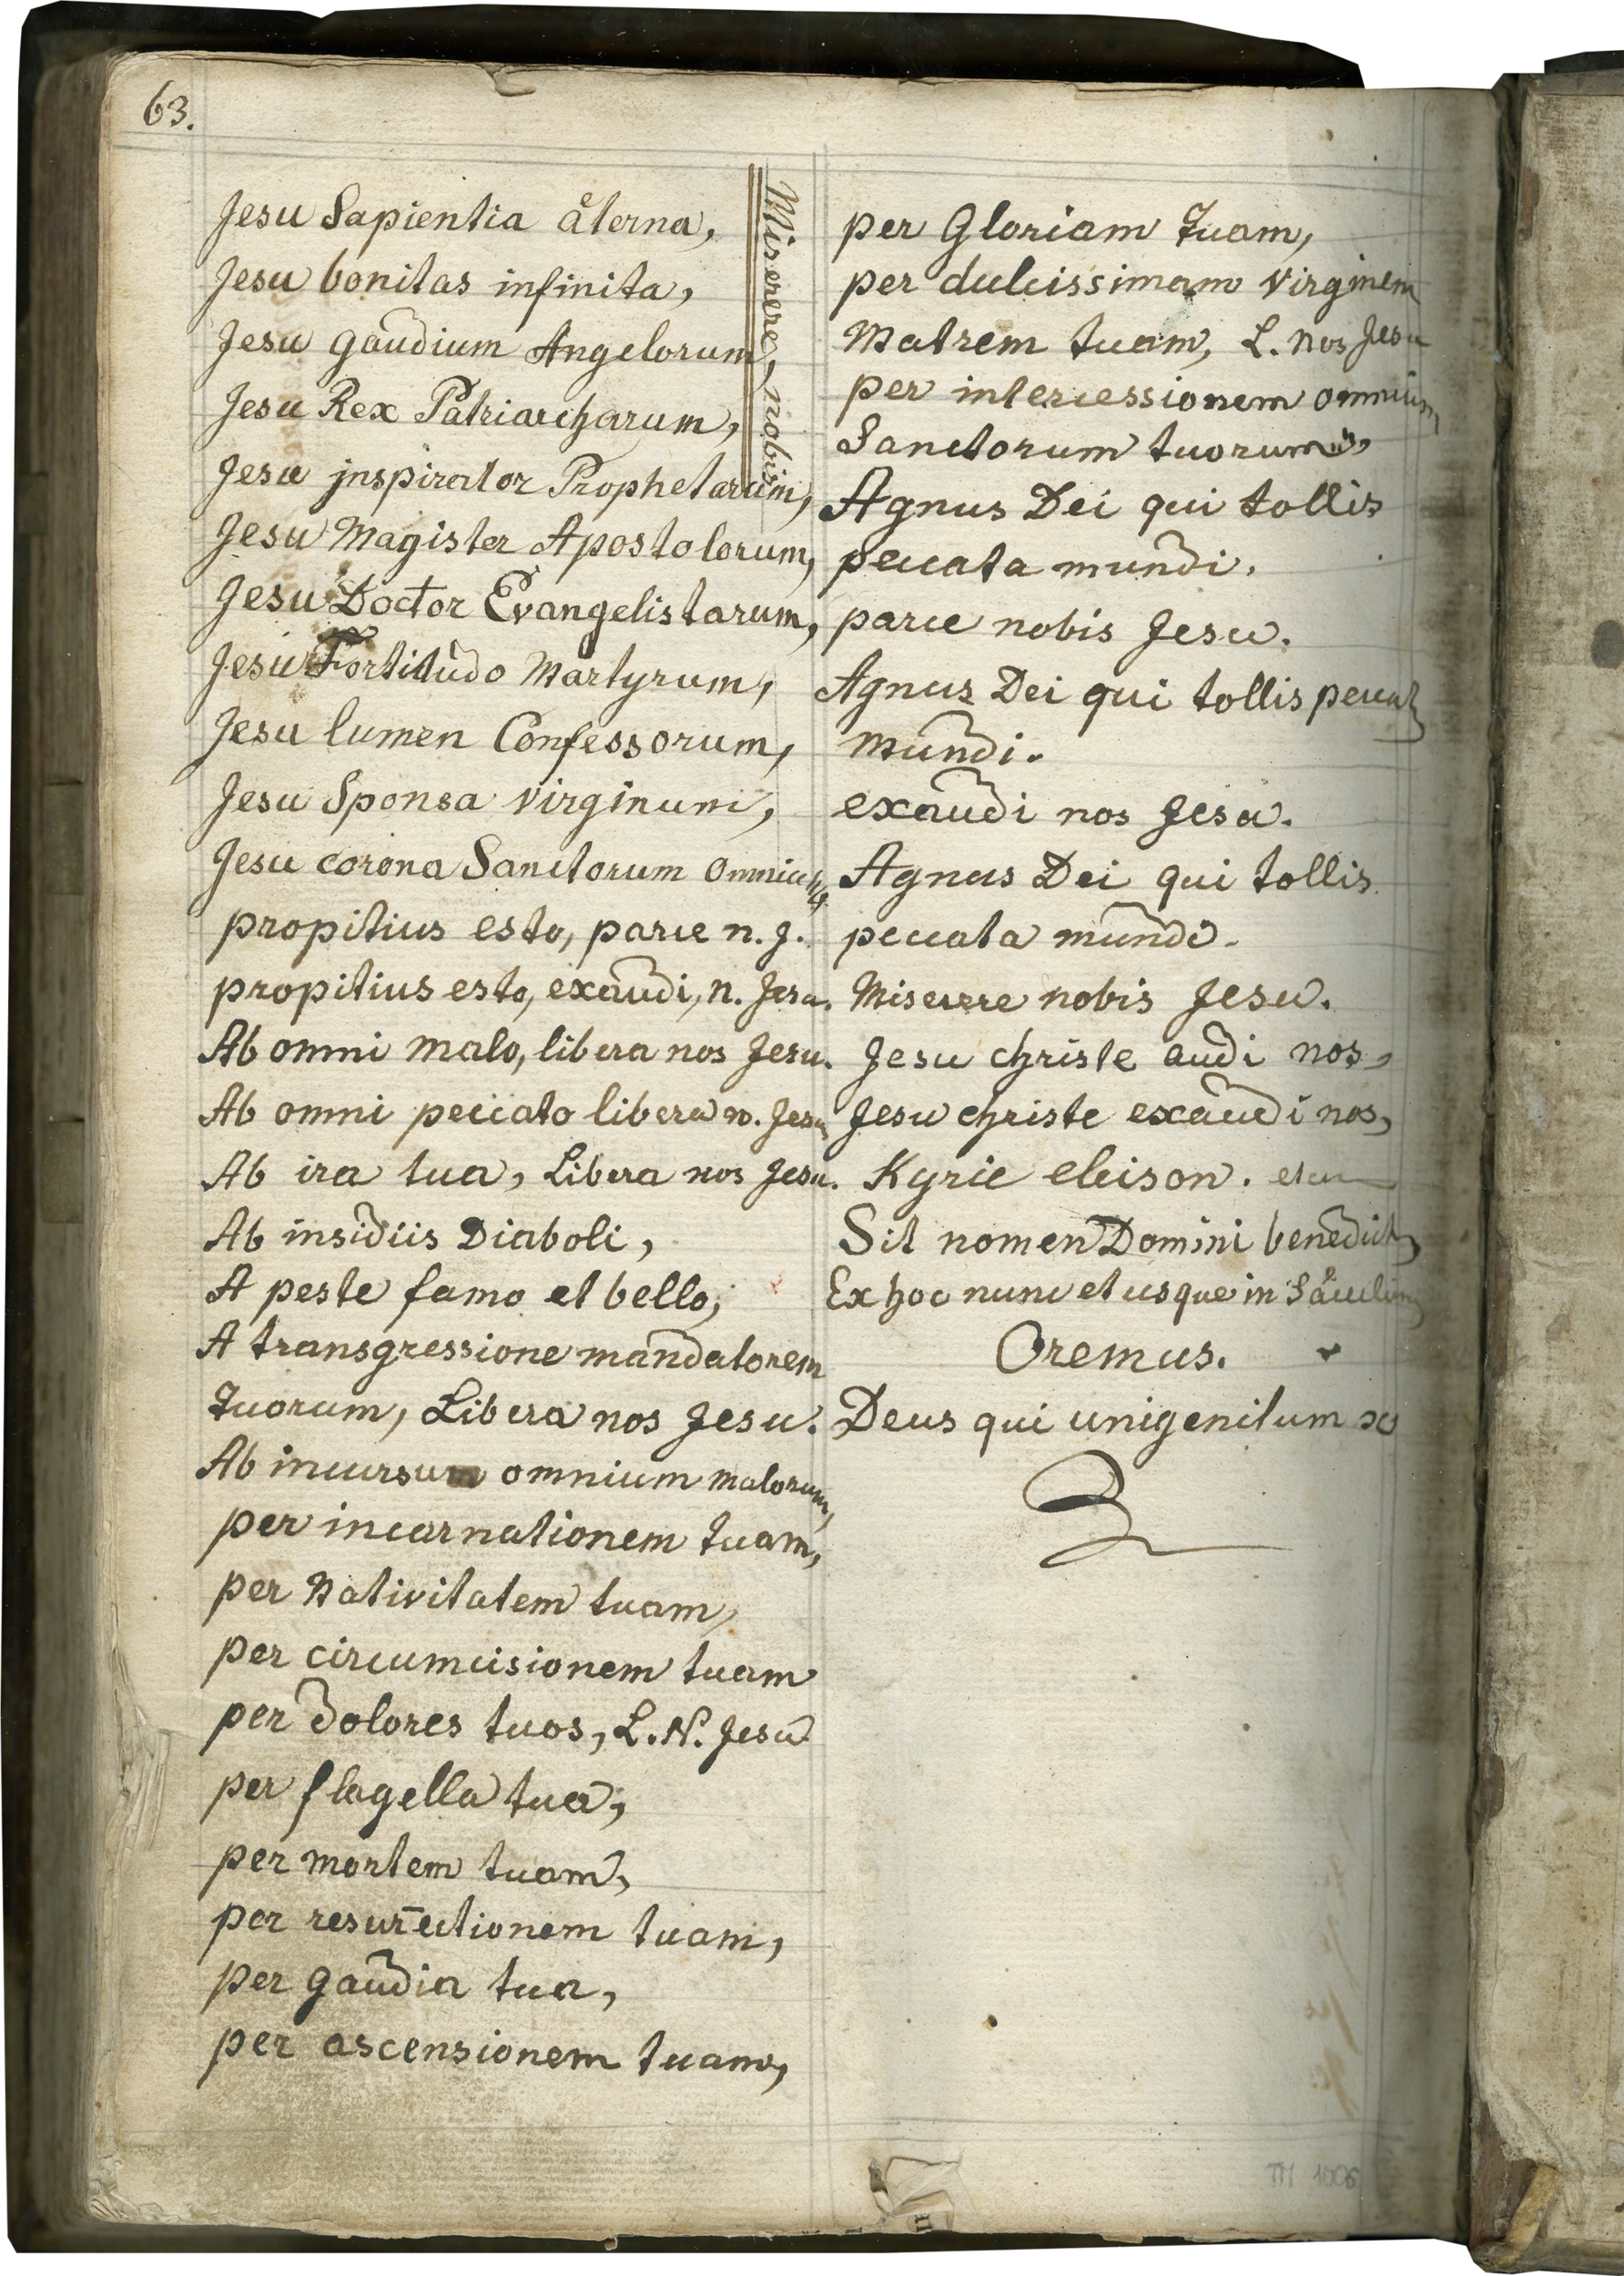 63.
Jesu Sapientia återna,
Jesu bonitas infinita,
Jesu gaudium Angelorum,
Jesu Rex Patriarcharum,
Jesu jnspirator Prophetarum,
Jesu Magister Apostolorum,
Jesu Doctor Evangelistarum,
Jesu Fortitudo Martyrum,
Jesu lumen Confessorum,
Jesu Sponsa virginum,
Jesu corona Sanctorum omnium
Miserere, nobis
propitius esto, parce n. J.
propitius esto, exaudi, n. Jesu.
Ab omni malo, libera nos Jesu.
Ab omni peccato libera n. Jesu
Ab ira tua, Libera nos Jesu.
Ab insidiis Diaboli,
A peste famo et bello,
A transgressione mandatorem
Tuorum, Libera nos Jesu.
Ab incursum omnium malorum,
per incarnationem tuam,
per Nativitatem tuam,
per circumcisionem tuam
per dolores tuos, L. N. Jesu
per flagella tua,
per mortem tuam,
per resurectionem tuam,
per gaudia tua,
per ascensionem tuam,
per Gloriam Tuam,
per dulcissimam Virginem
Matrem tuam, L. nos Jesu
per intercessionem omnium
Sanctorum tuorum,
Agnus Dei qui tollis
peccata mundi.
parce nobis Jesu.
Agnus Dei qui tollis
mundi.
exaudi nos Jesu.
Agnus Dei qui tollis
peccata mundi.
Miserere nobis Jesu.
Jesu christe audi nos,
Jesu christe exaudi nos,
Kyrie eleison.
Sit nomen Domini
Ex hoc nunc et usque in
Oremus.
Deus qui unigenitum